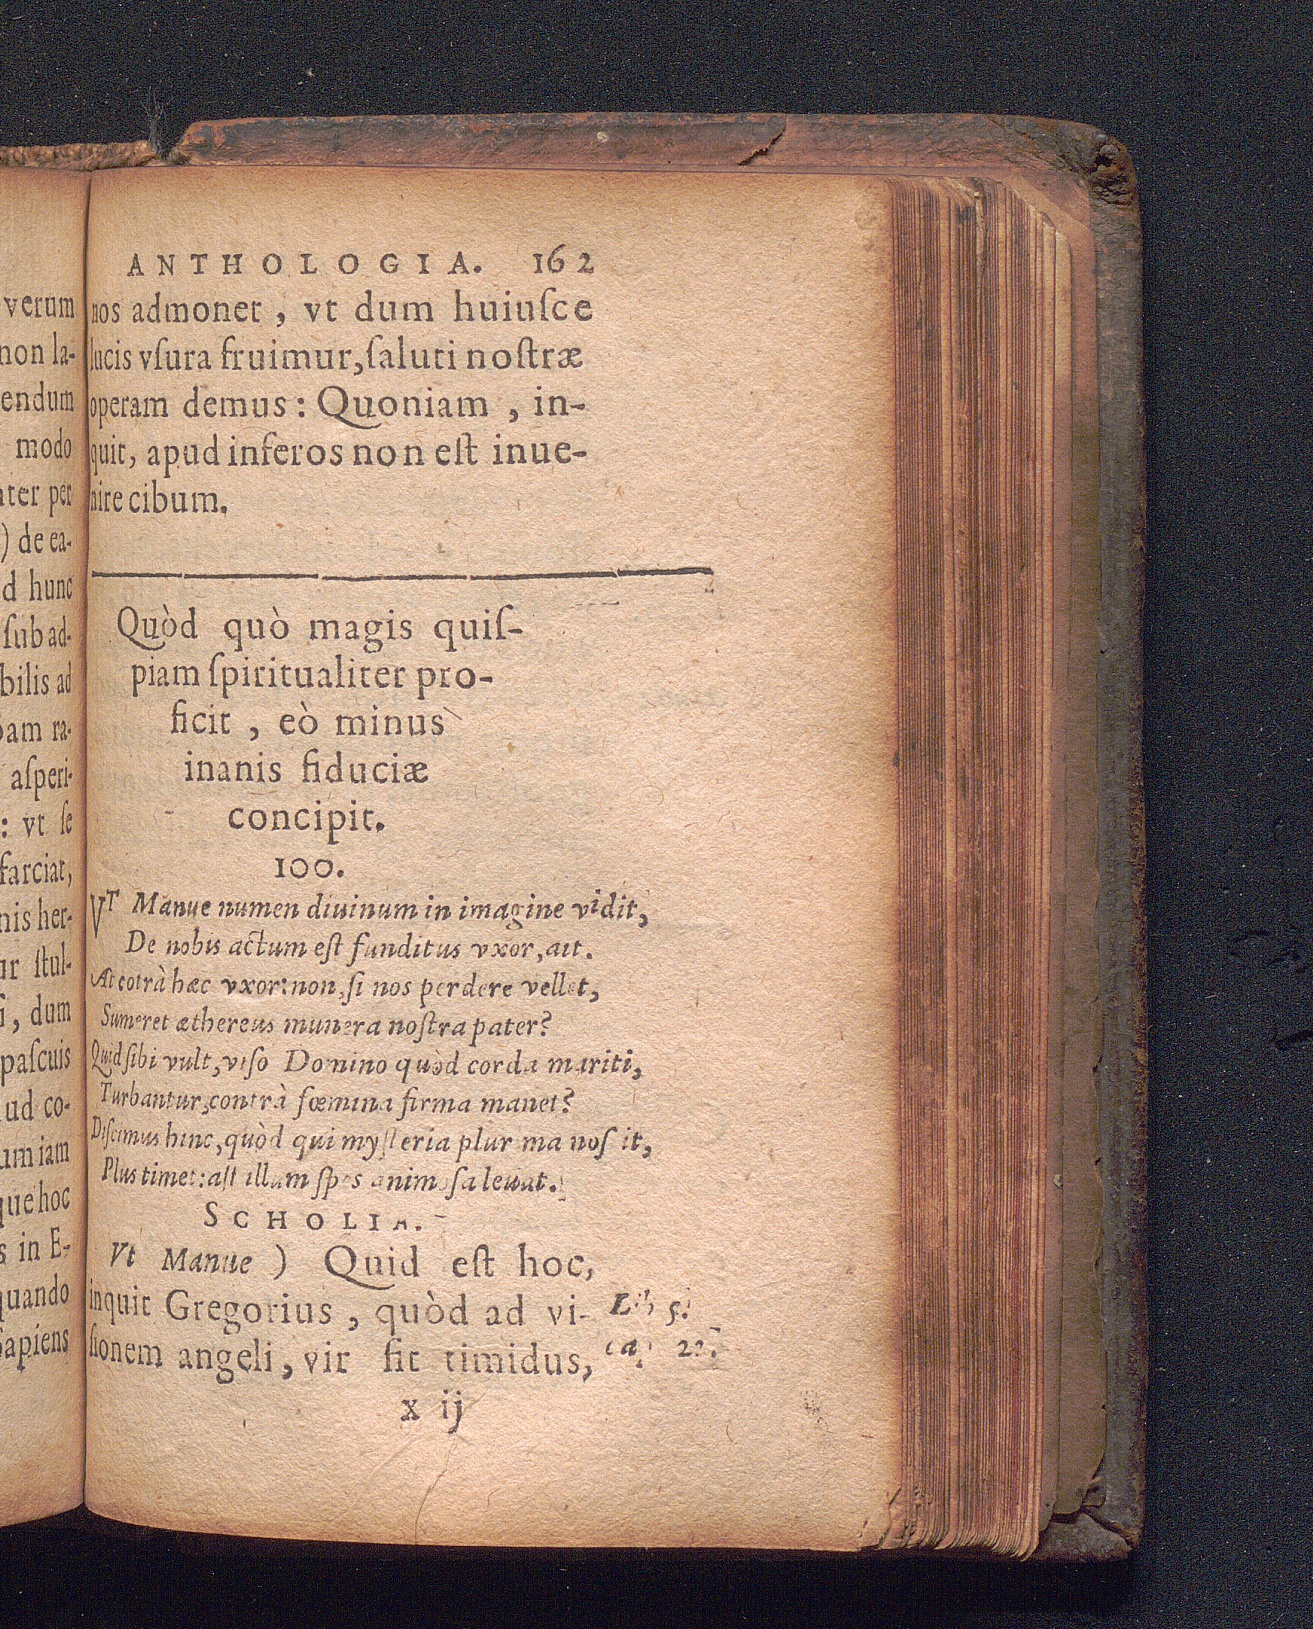 verum
non la-
endum
modo
ter per
) de ea-
d hunc
ſub ad-
bilis ad
am ra-
aſperi-
: vt ſe
farciat,
nis her-
ur ſtul-
ſi, dum
paſcuis
ud co-
um iam
que hoc
s in E-
quando
Sapiens
ANTHOLOGIA. 162
nos admonet , vt dum huiuſce
lucis vſura fruimur, ſaluti noſtræ
operam demus : Quoniam , in-
quit, apud inferos non eſt inue-
nire cibum.
Quòd quò magis quiſ-
piam ſpiritualiter pro-
ficit , eò minus
inanis fiduciæ
concipit.
100.
VT Manue numen diuinum in imagine vidit,
De nobis actum eſt funditus vxor, ait.
At cotrà hæc vxor: non, ſi nos perdere vellet,
Sumeret æthereus munera noſtra pater?
Quid ſibi vult, viſo Domino quòd corda mariti,
Turbantur, contrà fœmina firma manet?
Diſcimus hinc, quòd qui myſteria plurima noſcit,
Plus timet: aſt illum ſpes animoſa leuat.
SCHOLIA.
Vt Manue ) Quid eſt hoc,
inquit Gregorius , quòd ad vi-
ſionem angeli, vir fit timidus,
Lib 5.
ca. 22.
x ij